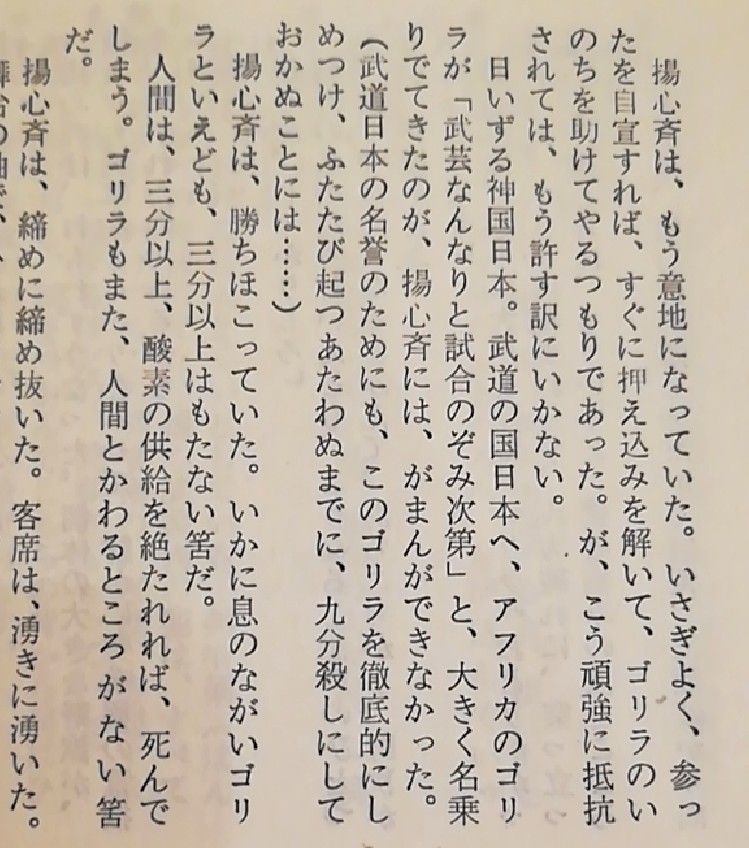 揚心斉は、もう意地になっていた。いさぎよく、参っ
たを自宣すれば、すぐに押え込みを解いて、ゴリラのい
のちを助けてやるつもりであった。が、こう頑強に抵抗
されては、もう許す訳にいかない。
日いずる神国日本。武道の国日本へ、アフリカのゴリ
ラが「武芸なんなりと試合のぞみ次第」と、大きく名乗
りでてきたのが、揚心斉には、がまんができなかった。
（武道日本の名誉のためにも、このゴリラを徹底的にし
めつけ、ふたたび起つあたわぬまでに、九分殺しにして
おかぬことには……）
揚心斉は、勝ちほこっていた。いかに息のながいゴリ
ラといえども、三分以上はもたない筈だ。
人間は、三分以上、酸素の供給を絶たれれば、死んで
しまう。ゴリラもまた、人間とかわるところがない筈
だ。
揚心斉は、締めに締め抜いた。客席は、湧きに湧いた。